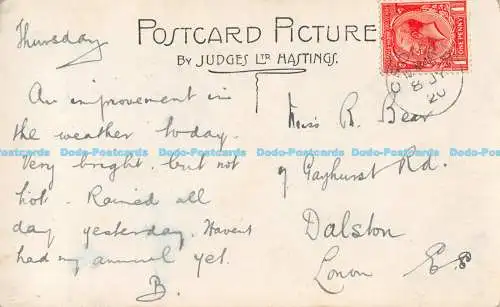 Thursday
POSTCARD PICTURE
BY JUDGES LTD HASTINGS.
ONE PENNY
8 JY
20
An improvement in
the weather to-day.
Very bright, but not
hot. Rained all
day yesterday. Havent
had my annual yet.
B.
Miss R. Bear
9 Gayhurst Rd.
Dalston
Lonon E8
Dodo-Postcards Dodo-Postcards Dodo-Postcards Dodo-Postcards Dodo-Postcards